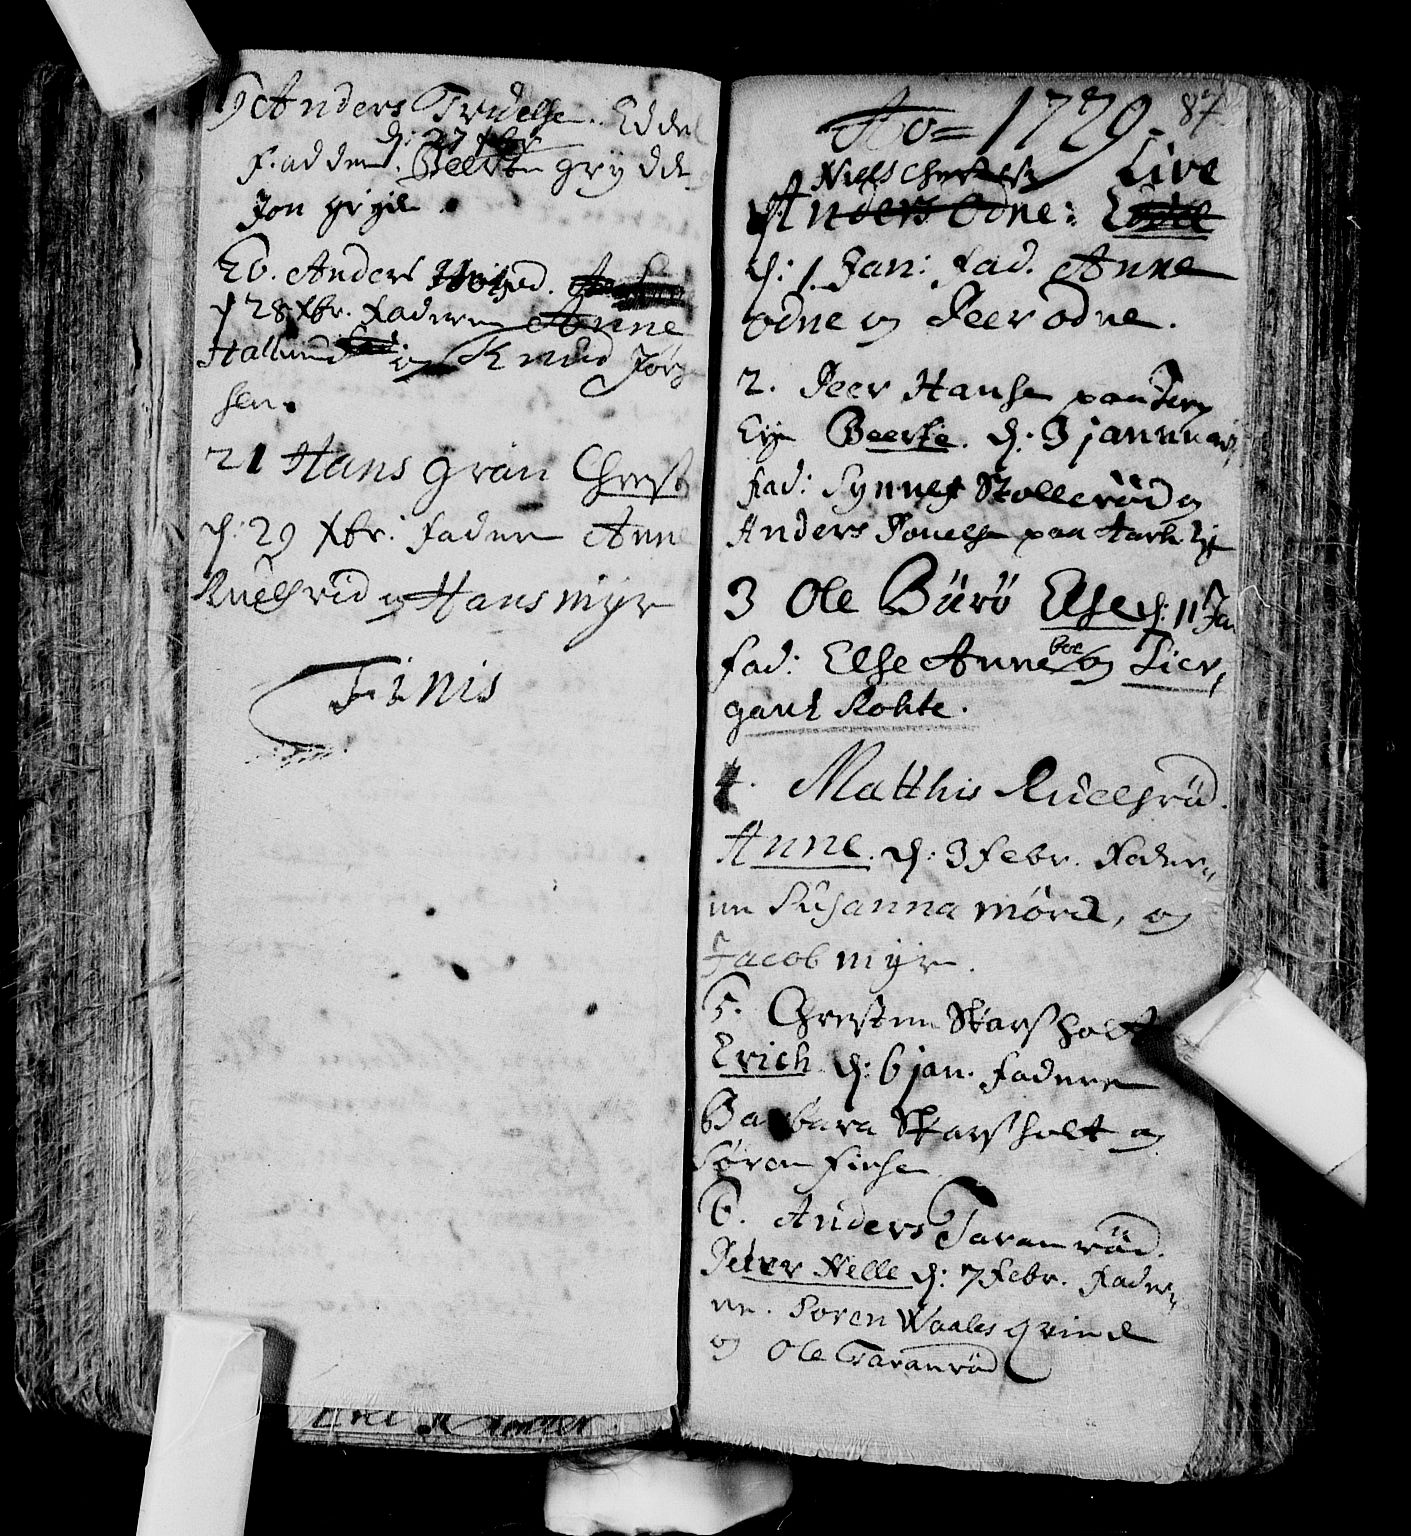 19 Anders Truelse. Eddel
d: 27 Xbr
Fadderne. Beerte grydde
Jon grydde.
20. Anders
d 28 Xbr. Fadderne Anne
Hallund og Knud Jørg
sen.
21 Hans grän Christ
d: 29 Xbr: Fadderne Anne
Ruelsrid og Hans mÿr
Finis
87
Ao= 1729.
Niels Christens Live
1. Anders Odne: Eddel
d: 1 Jan: fad. Anne
Odne og Peer odne.
2. Peer Hanse paa Terp
Eÿe Beerte. d: 3 januuarj
fad: Synnef Stolleröd og
Anders Pouelse paa
3 Ole Bürö Else d: 11 Jan
fad: Else Anne boe og Lier,
gant Rohte.
4. Matthis Ruelsröd.
Anne. d: 3 Febr. Fader-
ne Susanna mörck, og
Jacob mÿr.
5. Christen Skarsholt
Erich d: 6 jan. Fadderne
Barbara Skarsholt og
Søren Finse
6. Anders Taranröd.
Peter Nelle d: 7 Febr. Fader-
ne. Soren Waales qvinde
og Ole Taranröd